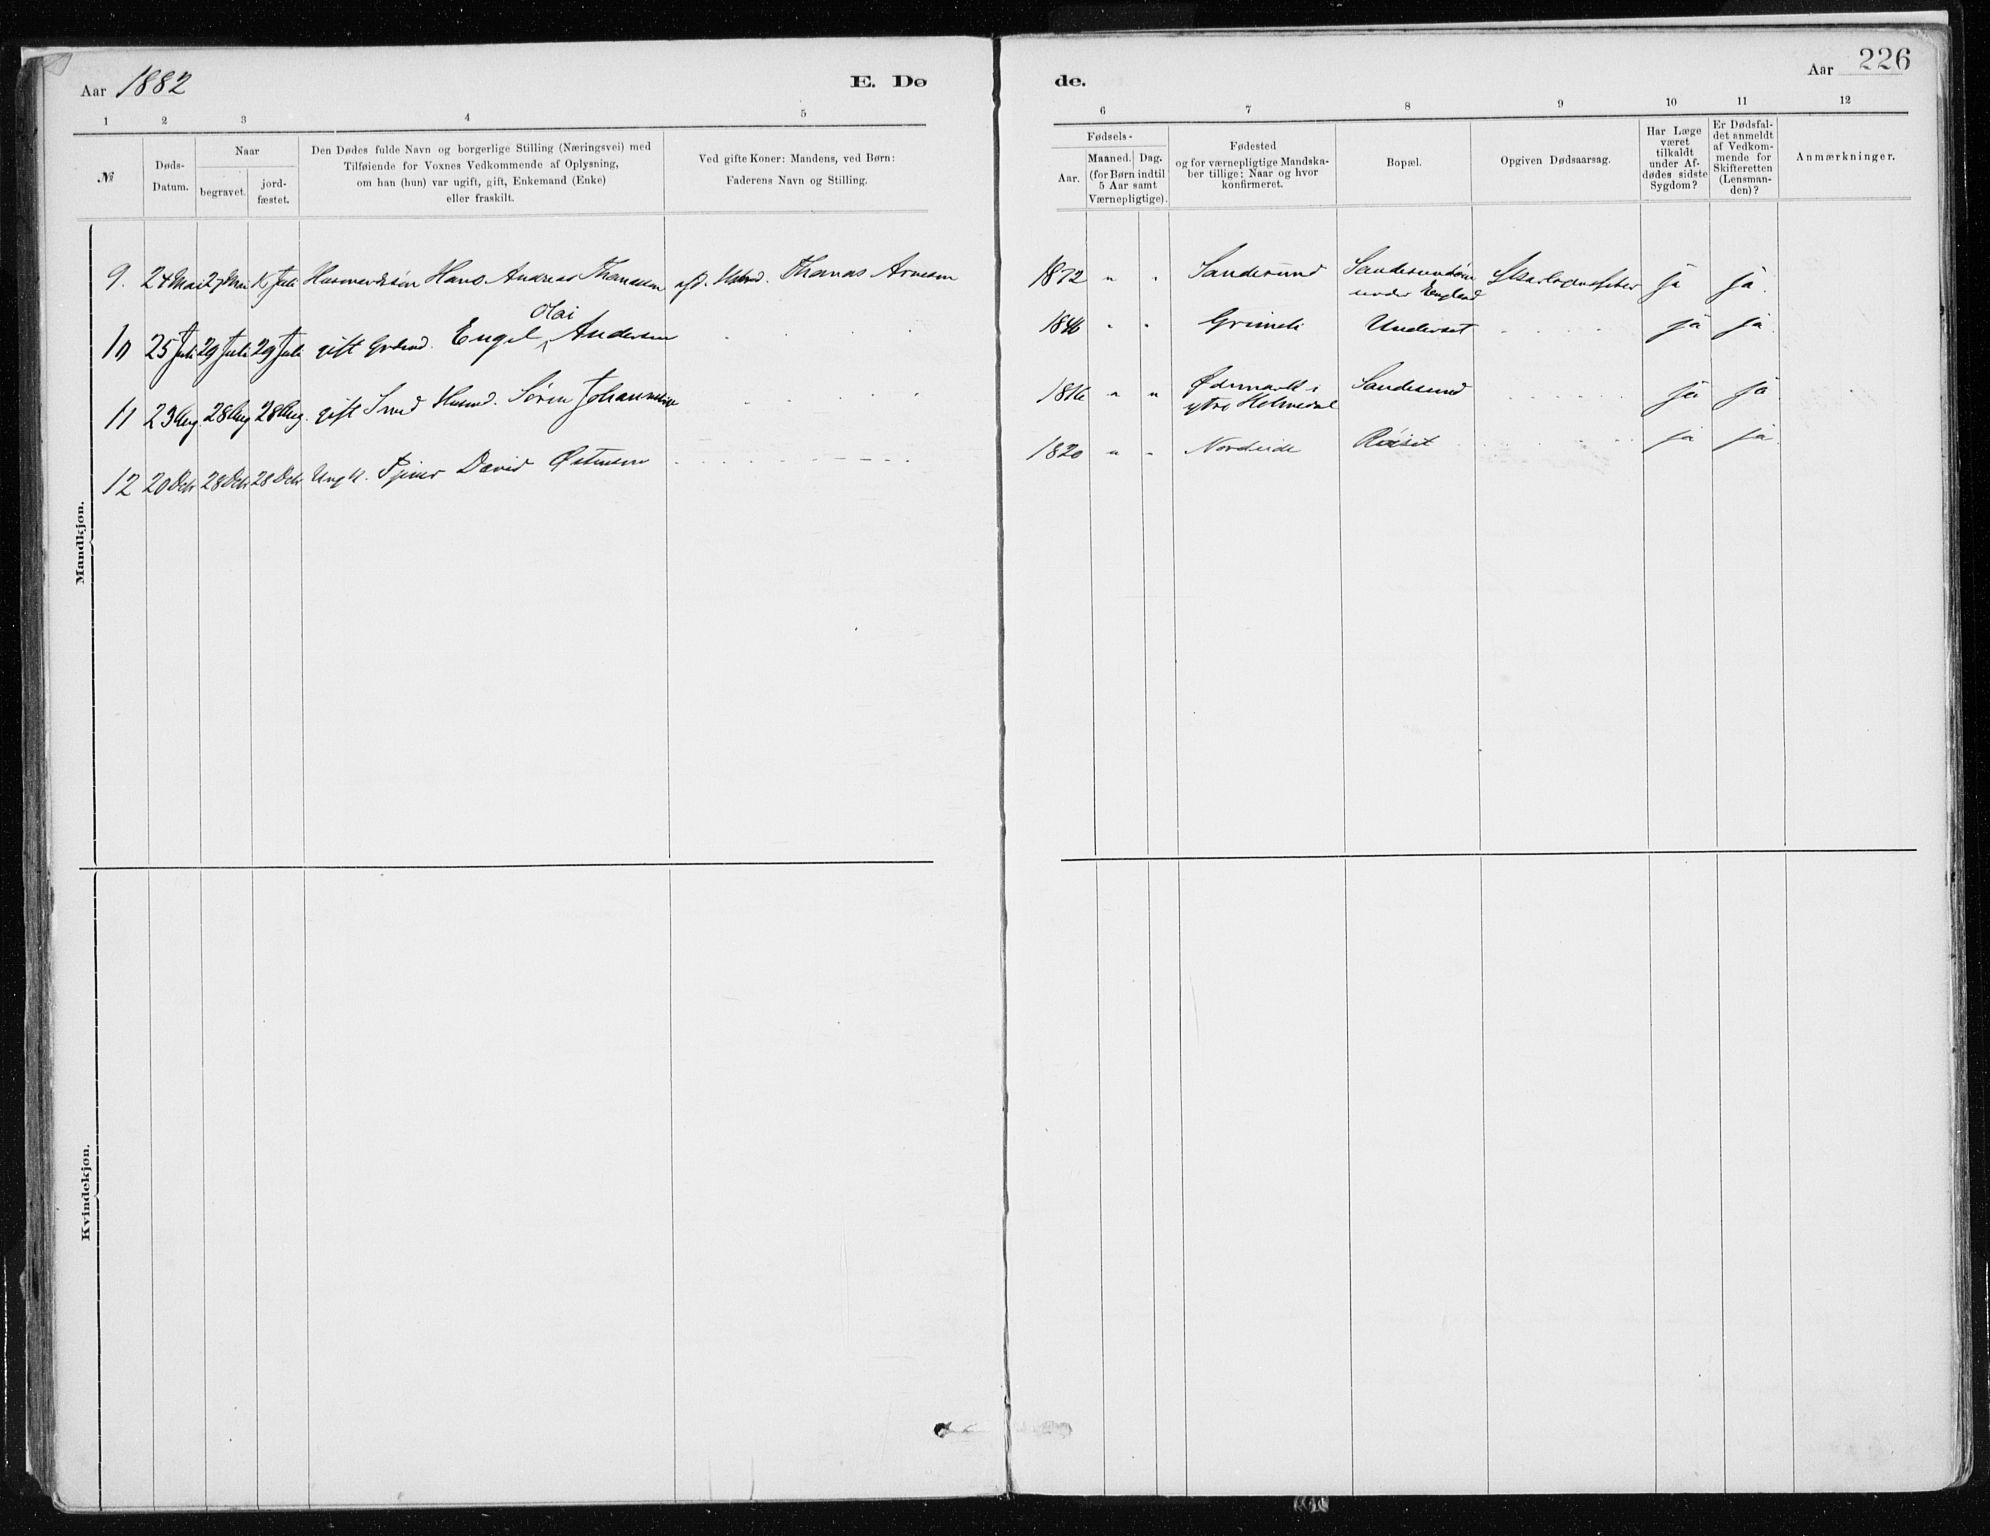 Aar 1882
E. Dø
de.
Aar 226
1 2 3 4 5
6 7 8 9 10 11 12
№
Døds-
Datum.
Naar
begravet.
jord-
fæstet.
Den Dødes fulde Navn og borgerlige Stilling (Næringsvei) med
Tilføiende for Voxnes Vedkommende af Oplysning,
om han (hun) var ugift, gift, Enkemand (Enke)
eller fraskilt.
Ved gifte Koner: Mandens, ved Børn:
Faderens Navn og Stilling.
Fødsels-
Aar.
Maaned. Dag.
(for Børn indtil
5 Aar samt
Værnepligtige).
Fødested
og for værnepligtige Mandska-
ber tillige: Naar og hvor
konfirmeret.
Bopæl.
Opgiven Dødsaarsag.
Har Læge
været
tilkaldt
under Af-
dødes sidste
Sygdom?
Er Dødsfal-
det anmeldt
af Vedkom-
mende for
Skifteretten
(Lensman-
den)?
Anmærkninger.
Mandkjøn.
9. 24 Mai 27 Mai Juli Husmandssøn Hans Andreas Thomassen Thomas Arnesen 1872 " " Sandesund Sandesund
under England Skarlagensfeber ja ja.
Olai
10 25 Juli 29 Juli 29 Juli gift Engel Andersen 1846 " " Grimeli Underset ja ja.
11 23 Aug. 28 Aug 28 Aug. gift Smed Husmd. Søren Johannesen 1816 " " Ødemark i
ytre Holmedal Sandesund ja ja
12 20 Octr 28 Octr 28 Octr Ungk. David Østensen 1820 " " Nordeide ja ja
Kvindekjøn.